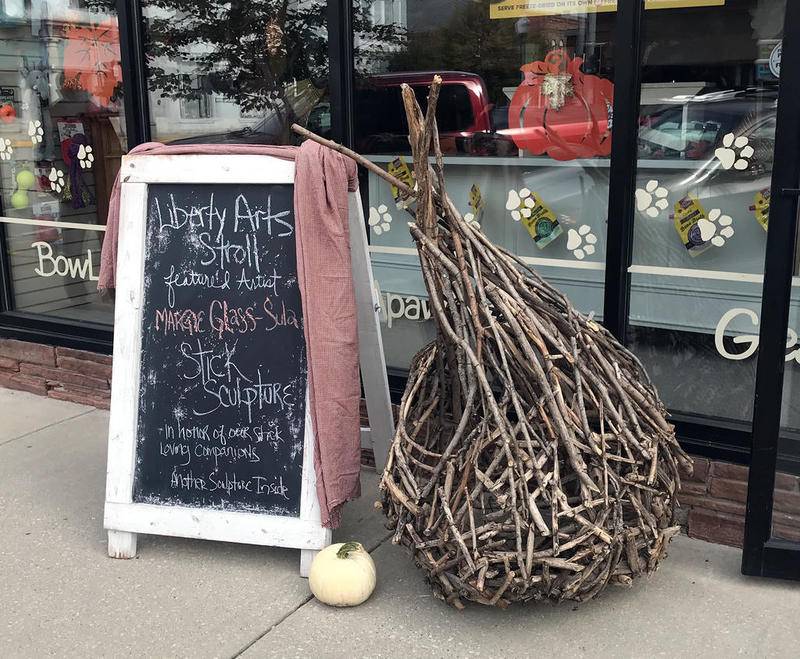 SERVE FREEZE-DRIED ON ITS OWN
Liberty Arts
Stroll
featured Artist
MARGIE Glass-Sula
Stick
Sculpture
-In honor of our stick
Loving Companions
Another Sculpture Inside
Bowl
Apaw
Ge